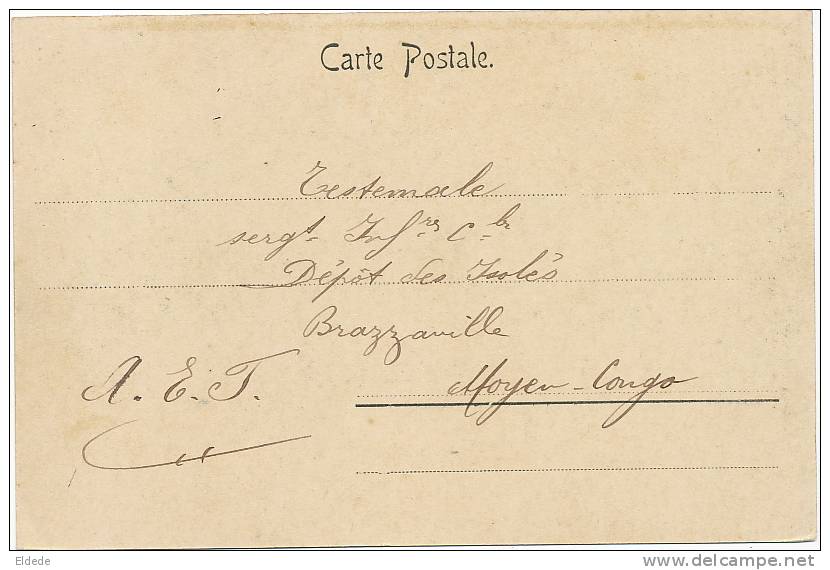 Carte Postale.
Testemale
sergt Infrie Cle
Dépôt des Isolés
Brazzaville
A. E. F.
Moyen-Congo
Eldede
delcampe.net